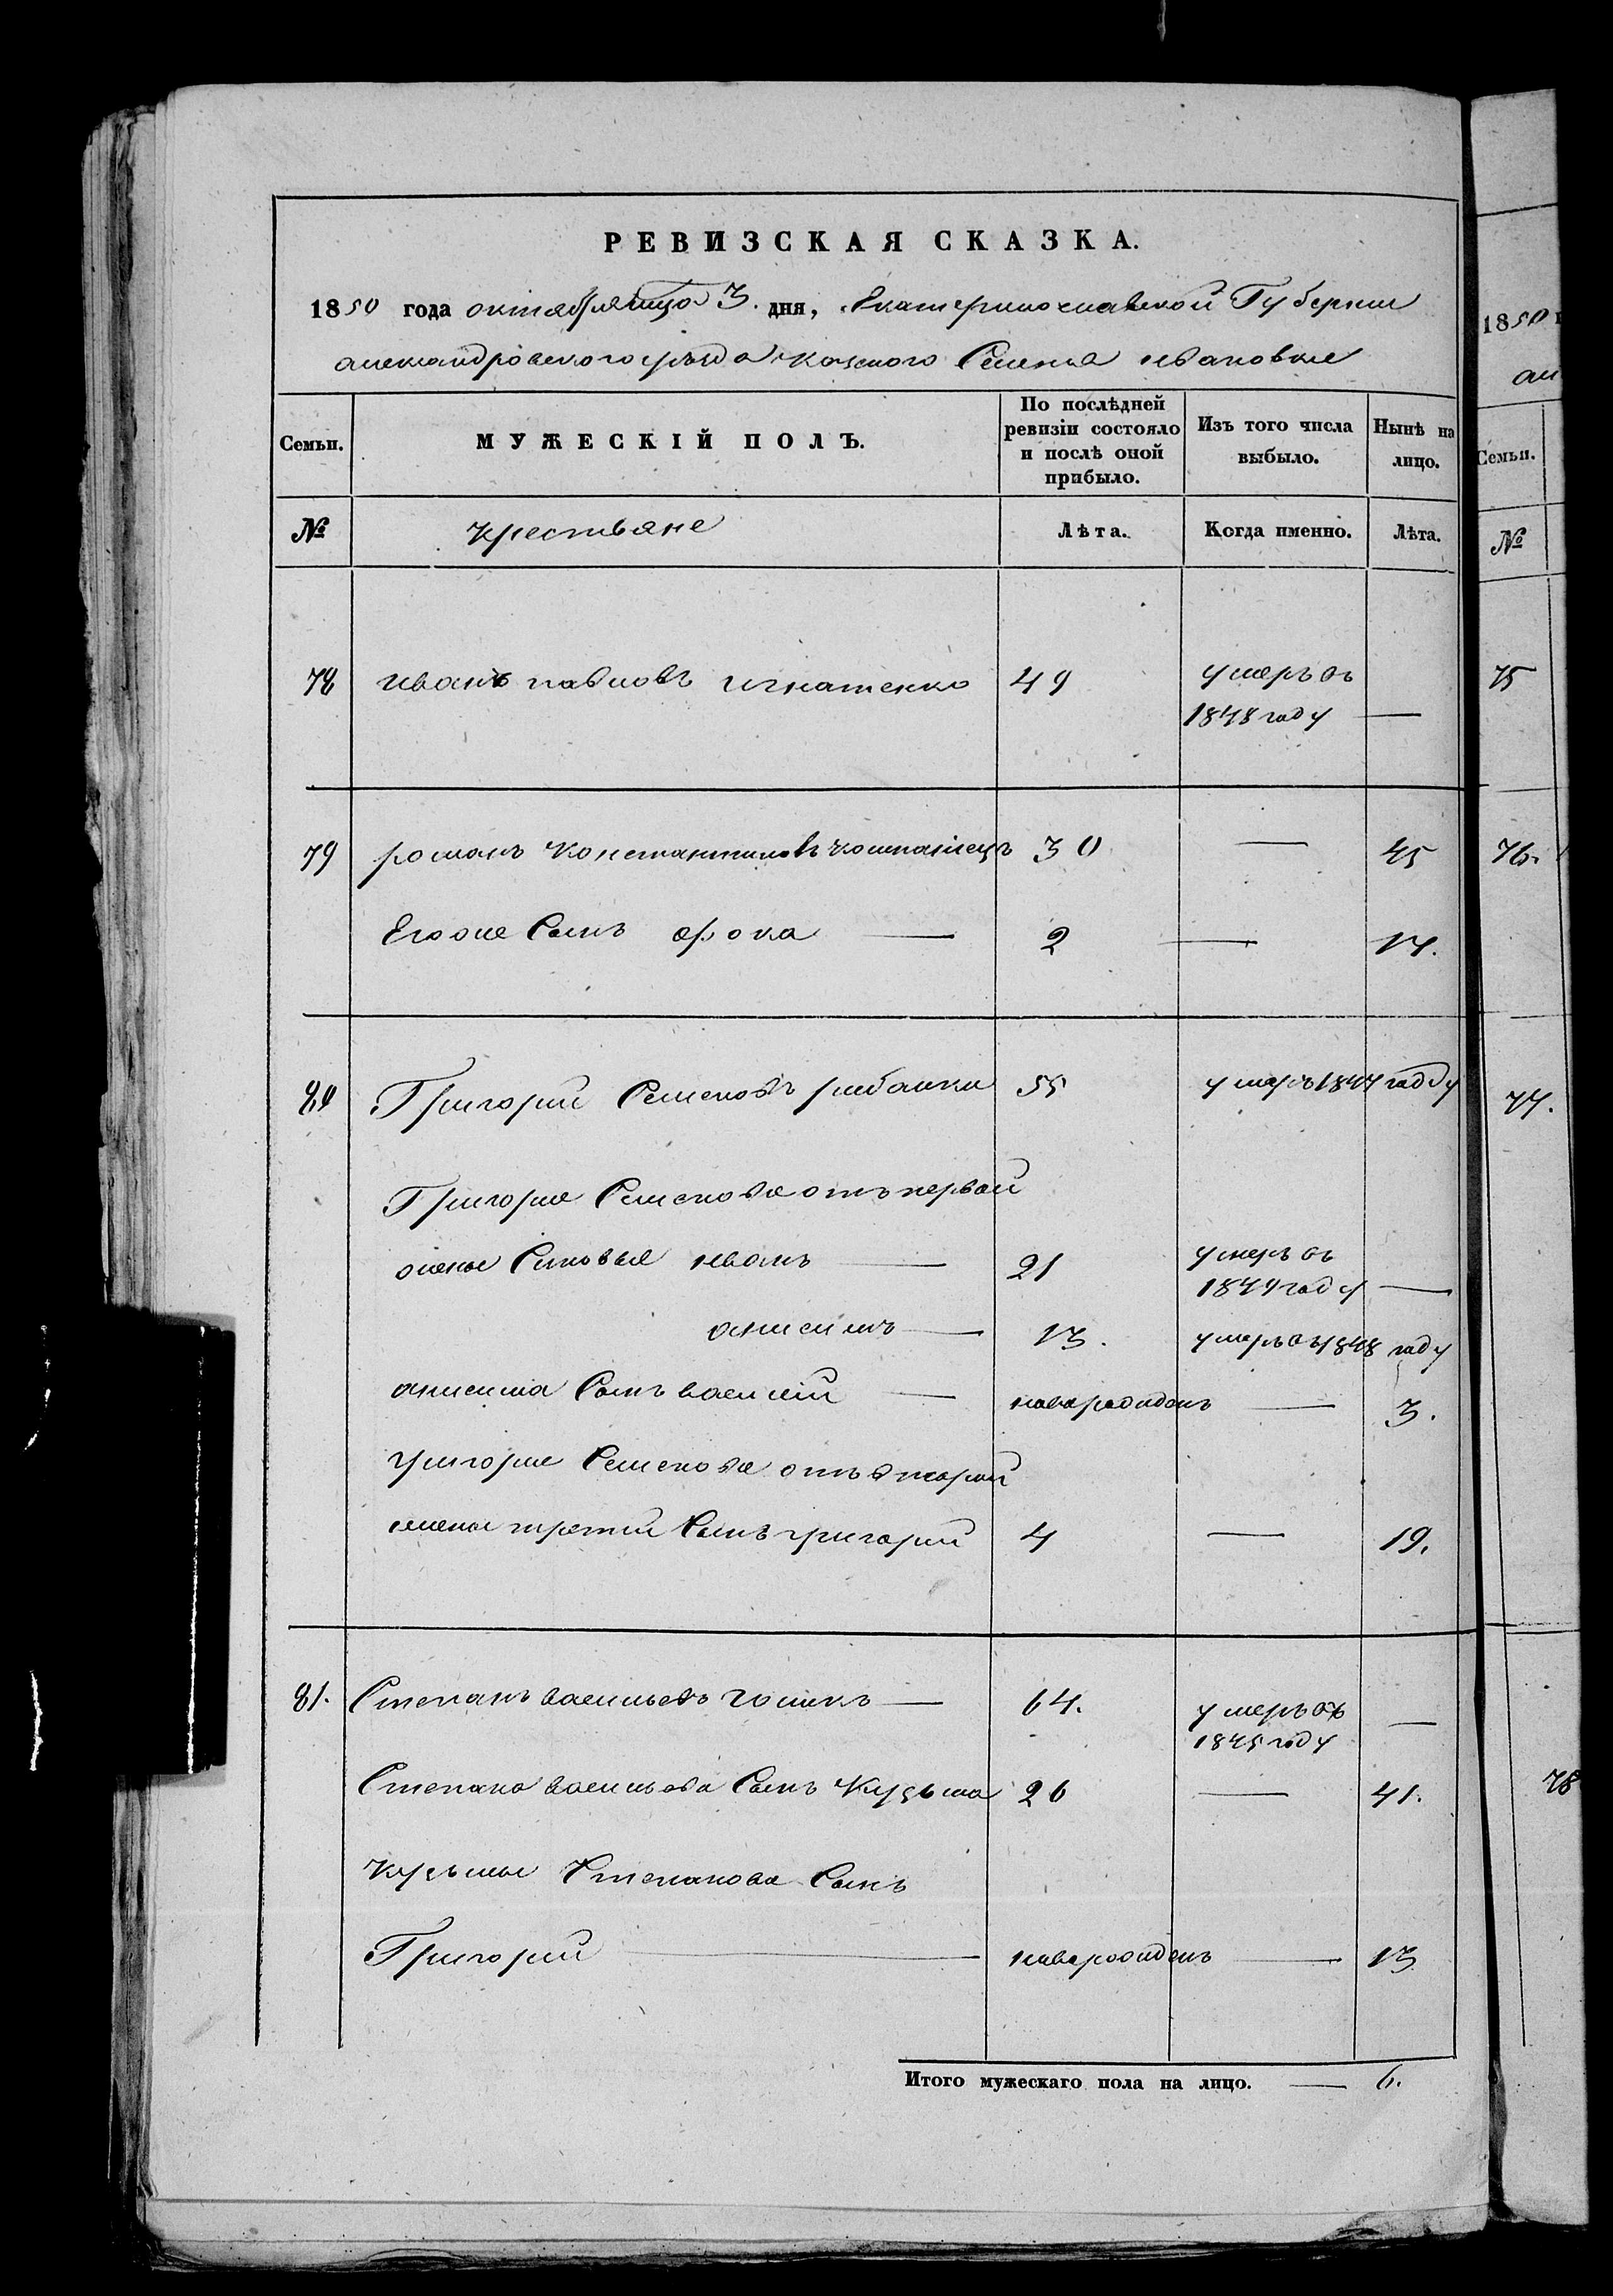 РЕВИЗСКАЯ СКАЗКА.
1850 года октября мца 3. дня, Екатеринославской Губернии
александровского уезда казеного Селенія ивановки
Семьи.
МУЖЕСКІЙ ПОЛЪ.
По послѣдней
ревизіи состояло
и послѣ оной
прибыло.
Изъ того числа
выбыло.
Нынѣ на
лицо.
№ крестьяне Лѣта. Когда именно. Лѣта.
78 иванъ павловъ игнатенко 49 умеръ въ
1848 году —
79 романъ константиновъ компаніецъ 30 — 45
Егоже Сынъ фока — 2 — 17.
80 Григорий Семеновъ рибалки 55 умеръ 1847 году
Григория Семенова отъ первой
жены Синовья иванъ — 21 умеръ въ
1849 году —
анисимъ — 13. умеръ въ 1848 году
анисима Сынъ василій — наварожденъ — 3.
григория Семенова отъ второй
жены третий Сынъ григорий 4 — 19.
81. Степанъ васильевъ — 64. умеръ въ —
1845 году
Степана васильева Сынъ Кузьма 26 — 41.
Кузьмы Степанова Сынъ
Григорий — наварожденъ — 13
Итого мужескаго пола на лицо. — 6.
1850
Семьи.
№
75
76.
77.
78